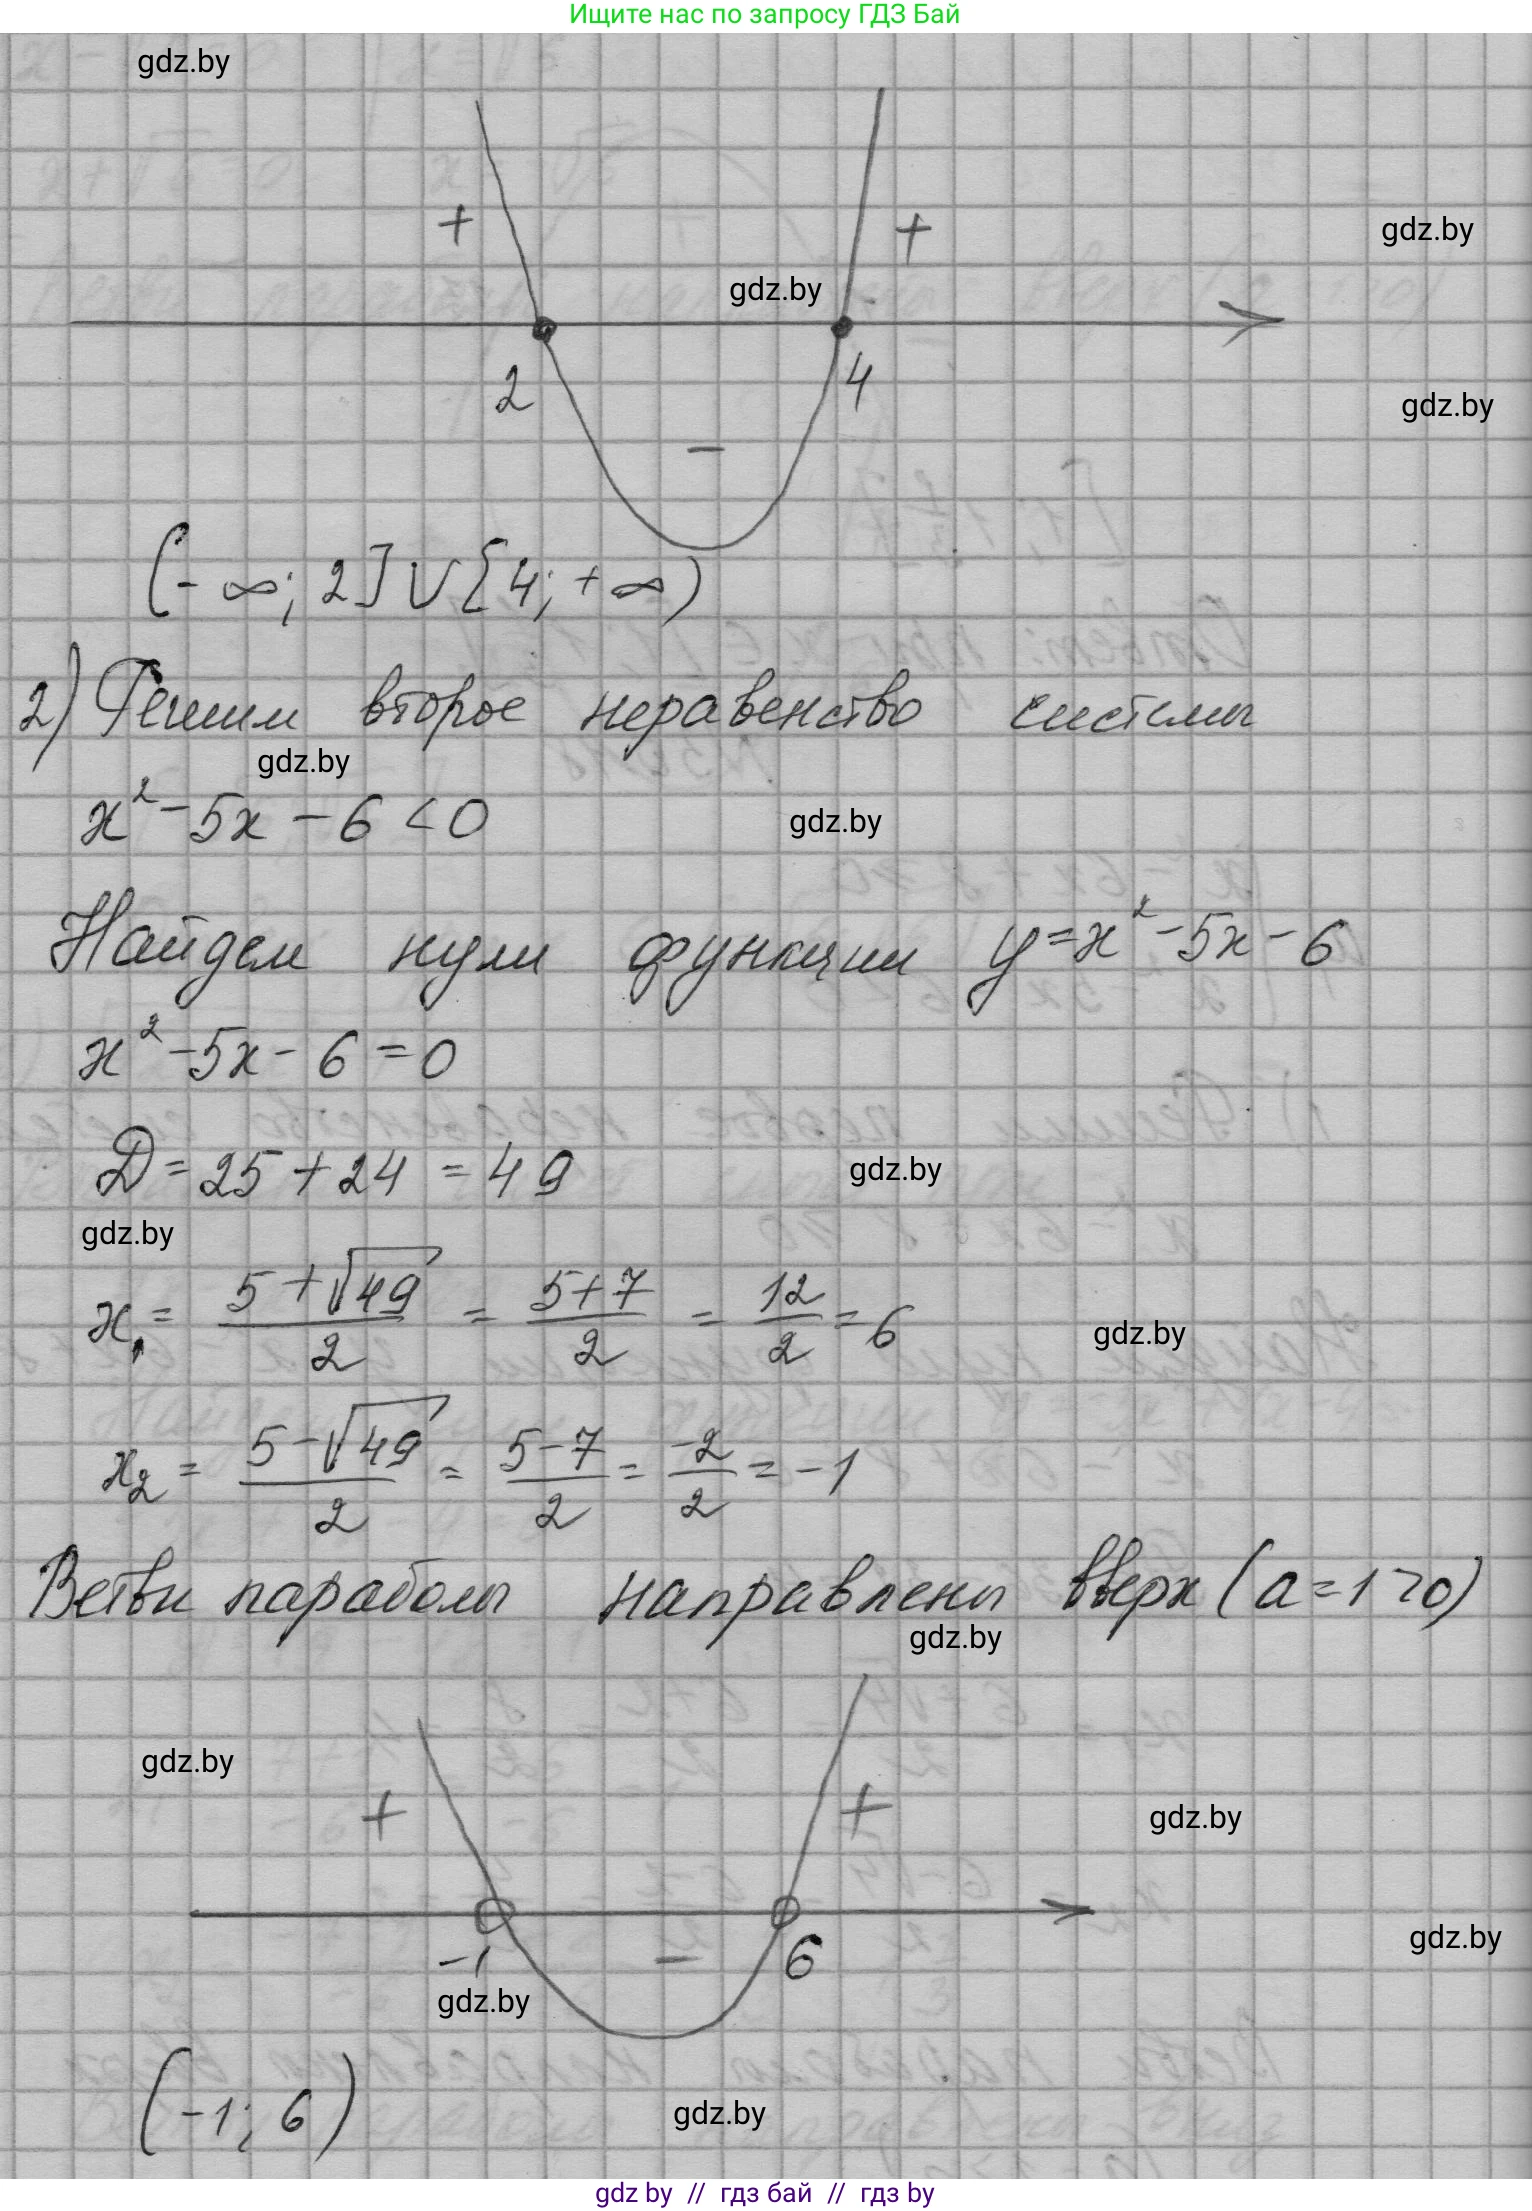 Ищите нас по запросу ГДЗ Бай
gdz.by
+ +
gdz.by
gdz.by
2 4
gdz.by
−
(-∞; 2] ∪ [4; +∞)
2) Решим второе неравенство системы
gdz.by
x² - 5x - 6 < 0
gdz.by
Найдем нули функции y = x² - 5x - 6
x² - 5x - 6 = 0
D = 25 + 24 = 49
gdz.by
gdz.by
x₁ = (5 + √49)/2 = (5+7)/2 = 12/2 = 6
gdz.by
x₂ = (5 - √49)/2 = (5-7)/2 = -2/2 = -1
Ветви параболы направлены вверх (a = 1 > 0)
gdz.by
gdz.by
+ +
gdz.by
-1 − 6
gdz.by
gdz.by
(-1; 6)
gdz.by
gdz by // гдз бай // гдз by